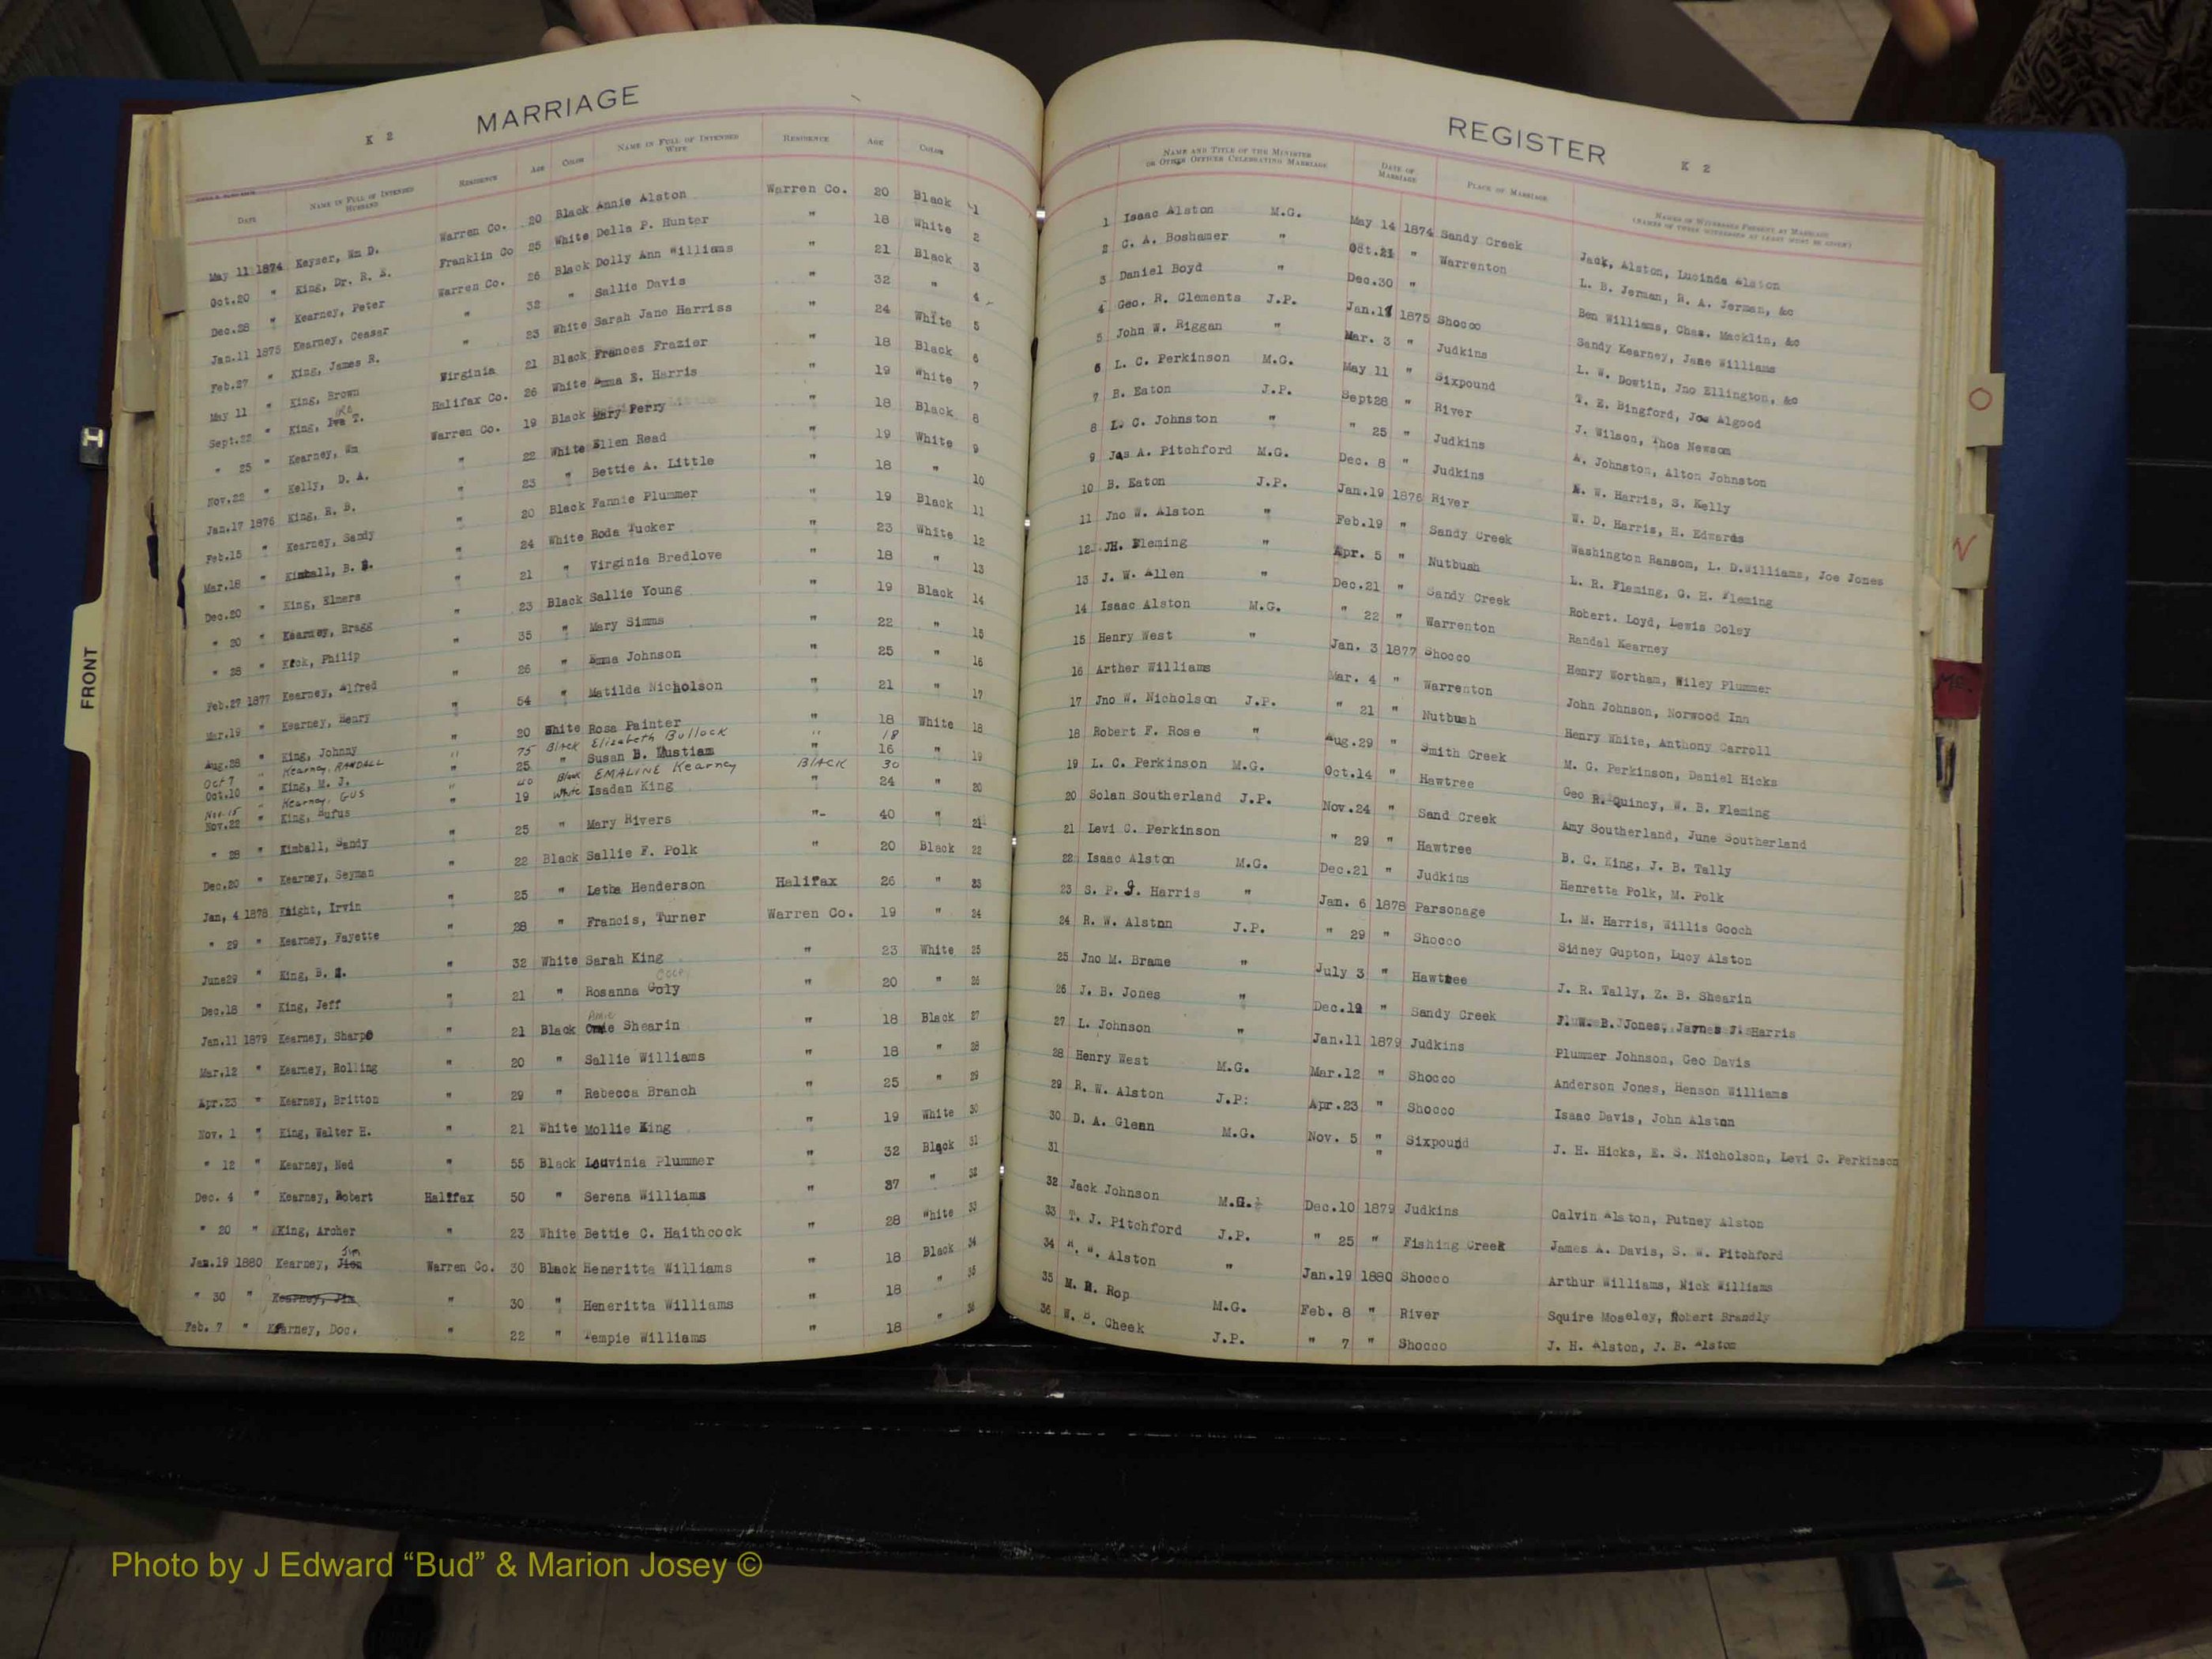 K 2 MARRIAGE
DATE NAME IN FULL OF INTENDED HUSBAND RESIDENCE AGE COLOR NAME IN FULL OF INTENDED WIFE RESIDENCE AGE COLOR
May 11 1874 Keyser, Wm D. Warren Co. 20 Black Annie Alston Warren Co. 20 Black 1
Oct.20 " King, Dr. R. E. Franklin Co 25 White Della P. Hunter " 18 White 2
Dec.28 " Kearney, Peter Warren Co. 26 Black Dolly Ann Williams " 21 Black 3
Jan.11 1875 Kearney, Ceasar " 32 " Sallie Davis " 32 " 4
Feb.27 " King, James R. " 23 White Sarah Jane Harriss " 24 White 5
May 11 " King, Brown Virginia 21 Black Frances Frazier " 18 Black 6
Sept.22 " King, Iva T. Halifax Co. 26 White Emma E. Harris " 19 White 7
" 25 " Kearney, Wm Warren Co. 19 Black Mary Perry " 18 Black 8
Nov.22 " Kelly, D. A. " 22 White Ellen Read " 19 White 9
Jan.17 1876 King, R. B. " 23 " Bettie A. Little " 18 " 10
Feb.15 " Kearney, Sandy " 20 Black Fannie Plummer " 19 Black 11
Mar.18 " Kimball, B. " 24 White Roda Tucker " 23 White 12
Dec.20 " King, Elmers " 21 " Virginia Bredlove " 18 " 13
" 20 " Kearney, Bragg " 23 Black Sallie Young " 19 Black 14
" 28 " Kick, Philip " 35 " Mary Simms " 22 " 15
Feb.27 1877 Kearney, Alfred " 26 " Emma Johnson " 25 " 16
Mar.19 " Kearney, Henry " 54 " Matilda Nicholson " 21 " 17
Aug.28 " King, Johnny " 20 White Rosa Painter " 18 White 18
Oct 7 " Kearney, RANDALL " 75 Black Elizabeth Bullock " 18
Oct.10 " King, M. J. " 25 " Susan B. Mustiam " 16 " 19
Nov.15 " Kearney, GUS " 40 Black EMALINE Kearney BLACK 30
Nov.22 " King, Rufus " 19 White Isadan King " 24 " 20
" 28 " Kimball, Sandy " 25 " Mary Rivers " 40 " 21
Dec.20 " Kearney, Seyman " 22 Black Sallie F. Polk " 20 Black 22
Jan, 4 1878 Knight, Irvin " 25 " Letha Henderson Halifax 26 " 23
" 29 " Kearney, Fayette " 28 " Francis, Turner Warren Co. 19 " 24
June29 " King, B. " 32 White Sarah King " 23 White 25
Dec.18 " King, Jeff " 21 " Rosanna Goly " 20 " 26
Jan.11 1879 Kearney, Sharpe " 21 Black Amie Shearin " 18 Black 27
Mar.12 " Kearney, Rolling " 20 " Sallie Williams " 18 " 28
Apr.23 " Kearney, Britton " 29 " Rebecca Branch " 25 " 29
Nov. 1 " King, Walter H. " 21 White Mollie King " 19 White 30
" 12 " Kearney, Ned " 55 Black Louvinia Plummer " 32 Black 31
Dec. 4 " Kearney, Robert Halifax 50 " Serena Williams " 37 " 32
" 20 " King, Archer " 23 White Bettie C. Haithcock " 28 White 33
Jan.19 1880 Kearney, Jim Warren Co. 30 Black Heneritta Williams " 18 Black 34
" 30 " Kearney, Jim " 30 " Heneritta Williams " 18 " 35
Feb. 7 " Kearney, Doc. " 22 " Tempie Williams " 18 " 36
REGISTER K 2
NAME AND TITLE OF THE MINISTER OR OTHER OFFICER CELEBRATING MARRIAGE DATE OF MARRIAGE PLACE OF MARRIAGE NAMES OF WITNESSES PRESENT AT MARRIAGE (NAMES OF THREE WITNESSES AT LEAST MUST BE GIVEN)
1 Isaac Alston M.G. May 14 1874 Sandy Creek Jack, Alston, Lucinda Alston
2 C. A. Boshamer " Oct.21 " Warrenton L. B. Jerman, R. A. Jerman, &c
3 Daniel Boyd " Dec.30 " Ben Williams, Chas. Macklin, &c
4 Geo. R. Clements J.P. Jan. 1875 Shocco Sandy Kearney, Jane Williams
5 John W. Riggan " Mar. 3 " Judkins L. W. Dowtin, Jno Ellington, &c
6 L. C. Perkinson M.G. May 11 " Sixpound T. E. Bingford, Jos Algood
7 B. Eaton J.P. Sept28 " River J. Wilson, Thos Newsom
8 L. C. Johnston " " 25 " Judkins A. Johnston, Alton Johnston
9 Jas A. Pitchford M.G. Dec. 8 " Judkins W. Harris, S. Kelly
10 B. Eaton J.P. Jan.19 1876 River W. D. Harris, H. Edwards
11 Jno W. Alston " Feb.19 " Sandy Creek Washington Ransom, L. D.Williams, Joe Jones
12 JH. Fleming " Apr. 5 " Nutbush L. R. Fleming, G. H. Fleming
13 J. W. Allen " Dec.21 " Sandy Creek Robert. Loyd, Lewis Coley
14 Isaac Alston M.G. " 22 " Warrenton Randal Kearney
15 Henry West " Jan. 3 1877 Shocco Henry Wortham, Wiley Plummer
16 Arther Williams Mar. 4 " Warrenton John Johnson, Norwood Inn
17 Jno W. Nicholson J.P. " 21 " Nutbush Henry White, Anthony Carroll
18 Robert F. Rose " Aug.29 " Smith Creek M. G. Perkinson, Daniel Hicks
19 L. C. Perkinson M.G. Oct.14 " Hawtree Geo R. Quincy, W. B. Fleming
20 Solan Southerland J.P. Nov.24 " Sand Creek Amy Southerland, June Southerland
21 Levi C. Perkinson " 29 " Hawtree B. C. King, J. B. Tally
22 Isaac Alston M.G. Dec.21 " Judkins Henretta Polk, M. Polk
23 S. P. J. Harris " Jan. 6 1878 Parsonage L. M. Harris, Willis Gooch
24 R. W. Alston J.P. " 29 " Shocco Sidney Gupton, Lucy Alston
25 Jno M. Brame " July 3 " Hawtree J. R. Tally, Z. B. Shearin
26 J. B. Jones " Dec.19 " Sandy Creek J. W. B. Jones, James F. Harris
27 L. Johnson " Jan.11 1879 Judkins Plummer Johnson, Geo Davis
28 Henry West M.G. Mar.12 " Shocco Anderson Jones, Henson Williams
29 R. W. Alston J.P: Apr.23 " Shocco Isaac Davis, John Alston
30 D. A. Glenn M.G. Nov. 5 " Sixpound J. H. Hicks, E. S. Nicholson, Levi C. Perkinson
31 "
32 Jack Johnson M.G. Dec.10 1879 Judkins Calvin Alston, Putney Alston
33 T. J. Pitchford J.P. " 25 " Fishing Creek James A. Davis, S. W. Pitchford
34 R. W. Alston " Jan.19 1880 Shocco Arthur Williams, Nick Williams
35 M. H. Rop M.G. Feb. 8 " River Squire Moseley, Robert Brandly
36 W. B. Cheek J.P. " 7 " Shocco J. H. Alston, J. B. Alston
FRONT
O
N
Mc.
Photo by J Edward “Bud” & Marion Josey ©